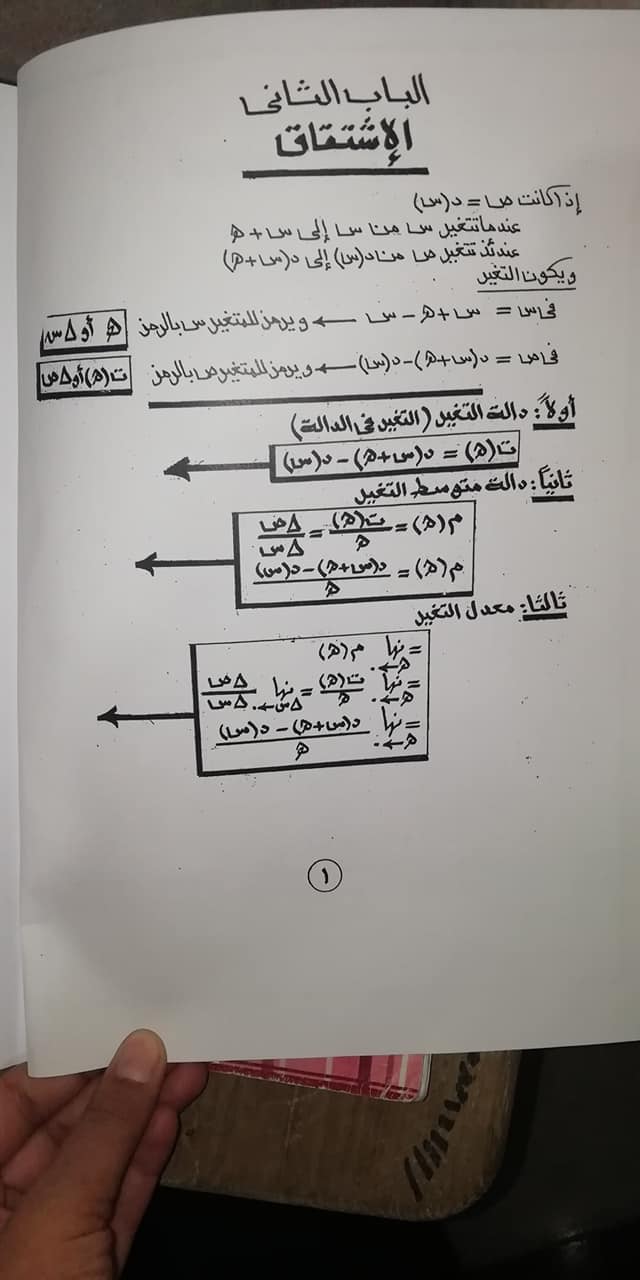 الباب الثانى
الإشتقاق
إذا كانت ص = د(س)
عندما تتغير س من س إلى س + ﻫ
عندئذ تتغير ص من د(س) إلى د(س+ﻫ)
ويكون التغير
فى س = س + ﻫ - س ← ويرمز للمتغير س بالرمز ﻫ أو Δس
فى ص = د(س+ﻫ) - د(س) ← ويرمز للمتغير ص بالرمز ت(ﻫ) أو Δص
أولاً: دالة التغير (التغير فى الدالة)
ت(ﻫ) = د(س+ﻫ) - د(س)
ثانياً: دالة متوسط التغير
م(ﻫ) = ت(ﻫ)/ﻫ = Δص/Δس
م(ﻫ) = د(س+ﻫ) - د(س)/ﻫ
ثالثا: معدل التغير
= نها ﻫ←٠ م(ﻫ)
= نها ﻫ←٠ ت(ﻫ)/ﻫ = نها Δس←٠ Δص/Δس
= نها ﻫ←٠ د(س+ﻫ) - د(س)/ﻫ
١